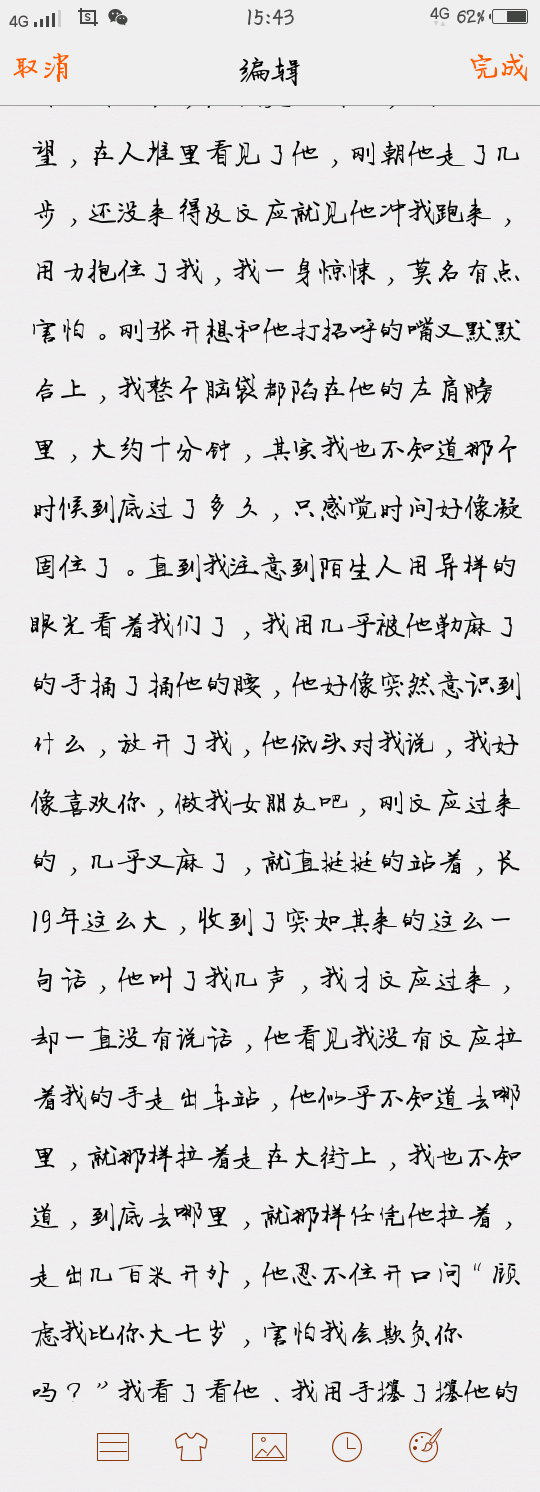 4G 15:43 4G 62%
取消 编辑 完成
望，在人堆里看见了他，刚朝他走了几
步，还没来得及反应就见他冲我跑来，
用力抱住了我，我一身惊悚，莫名有点
害怕。刚张开想和他打招呼的嘴又默默
合上，我整个脑袋都陷在他的左肩膀
里，大约十分钟，其实我也不知道那个
时候到底过了多久，只感觉时间好像凝
固住了。直到我注意到陌生人用异样的
眼光看着我们了，我用几乎被他勒麻了
的手捅了捅他的腰，他好像突然意识到
什么，放开了我，他低头对我说，我好
像喜欢你，做我女朋友吧，刚反应过来
的，几乎又麻了，就直挺挺的站着，长
19年这么大，收到了突如其来的这么一
句话，他叫了我几声，我才反应过来，
却一直没有说话，他看见我没有反应拉
着我的手走出车站，他似乎不知道去哪
里，就那样拉着走在大街上，我也不知
道，到底去哪里，就那样任凭他拉着，
走出几百米开外，他忍不住开口问“顾
虑我比你大七岁，害怕我会欺负你
吗？”我看了看他、我用手攥了攥他的